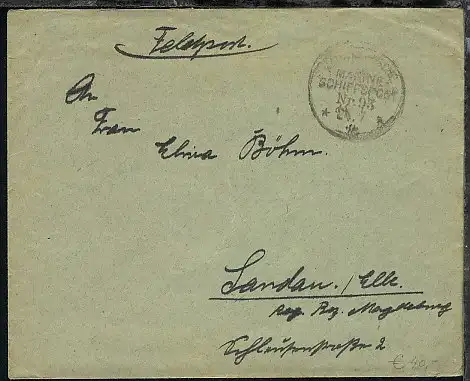 Feldpost.
MARINE-
SCHIFFSPOST
Nr. 93
24. 7
An
Frau
Elwira Böhm.
Sandau./Elbe.
Reg. Bez. Magdeburg
Schleusenstraße 2
€ 40,-